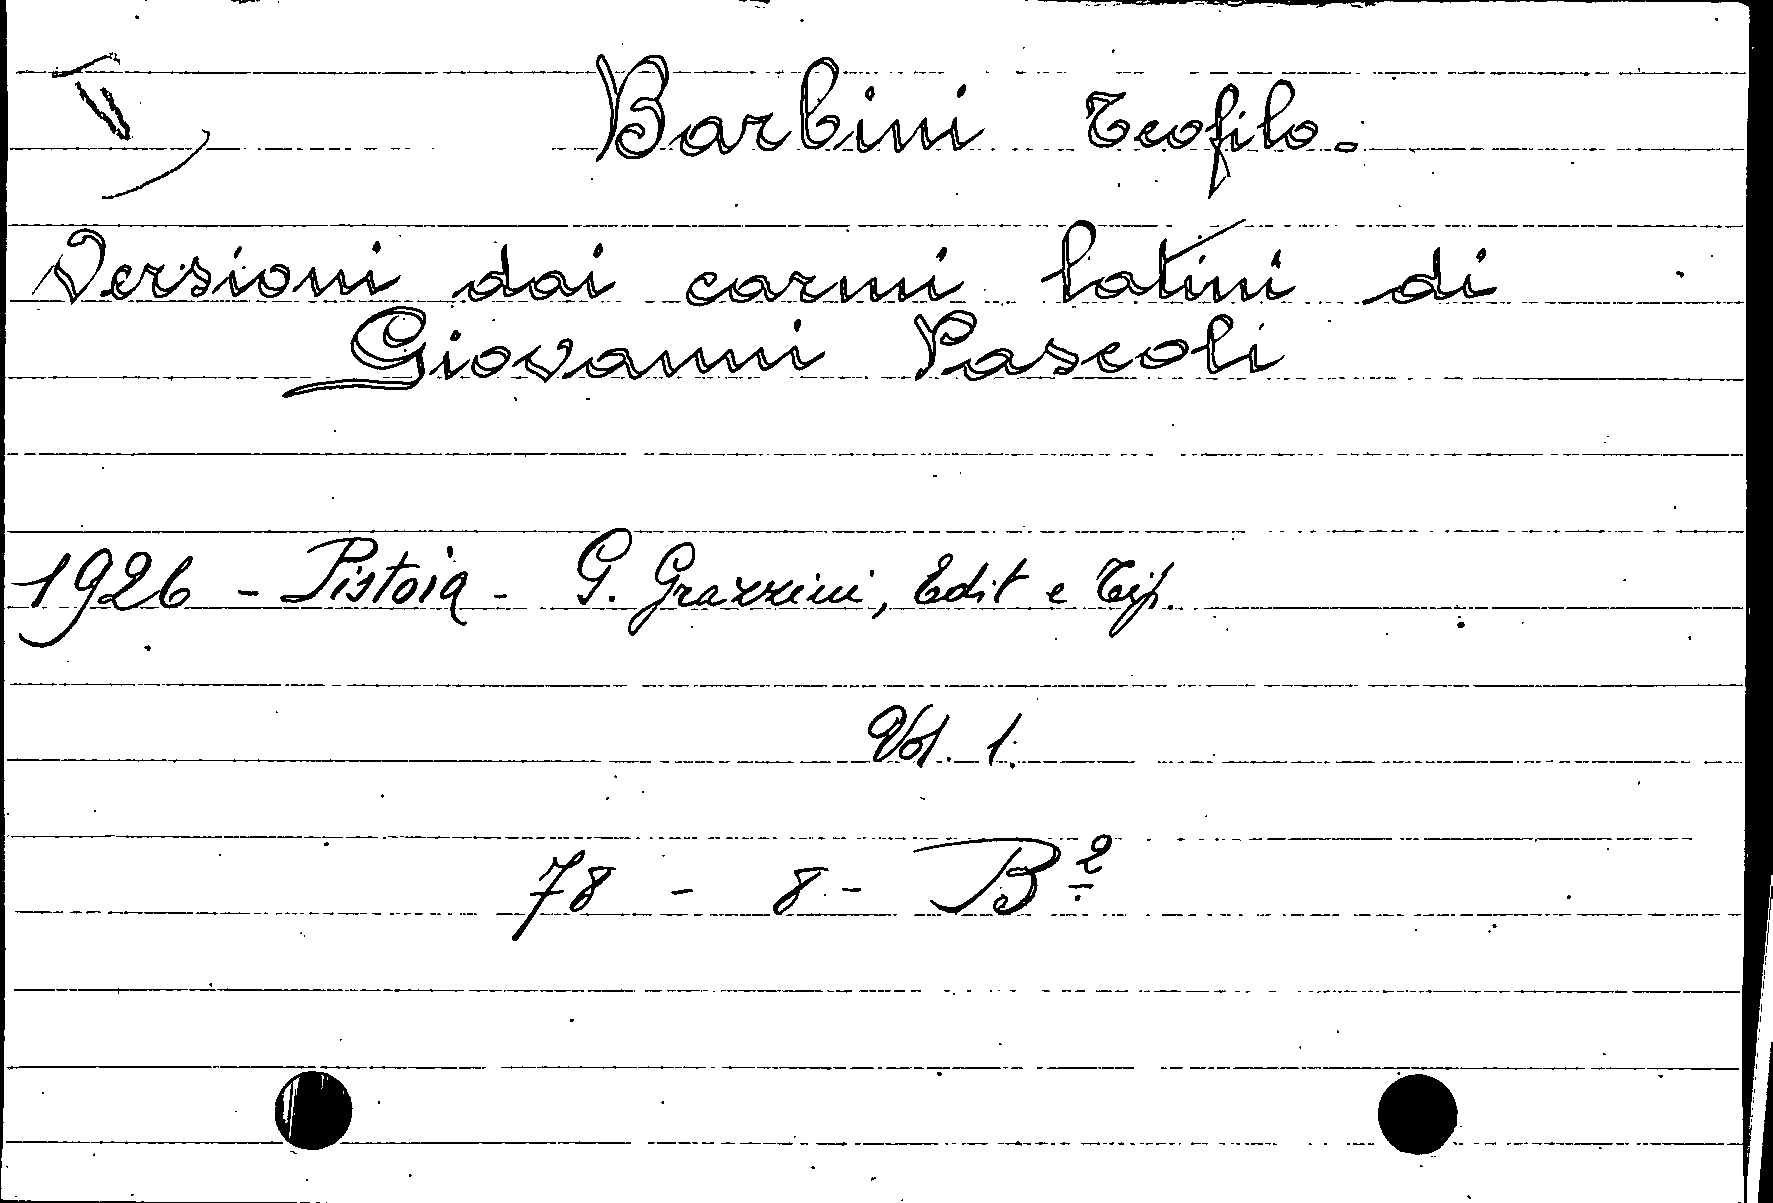 Barbini Teofilo.
Versioni dai carmi latini di
Giovanni Pascoli
1926 - Pistoia - G. Grazzini, Edit e Tip.
Vol. 1.
78 - 8 - B²